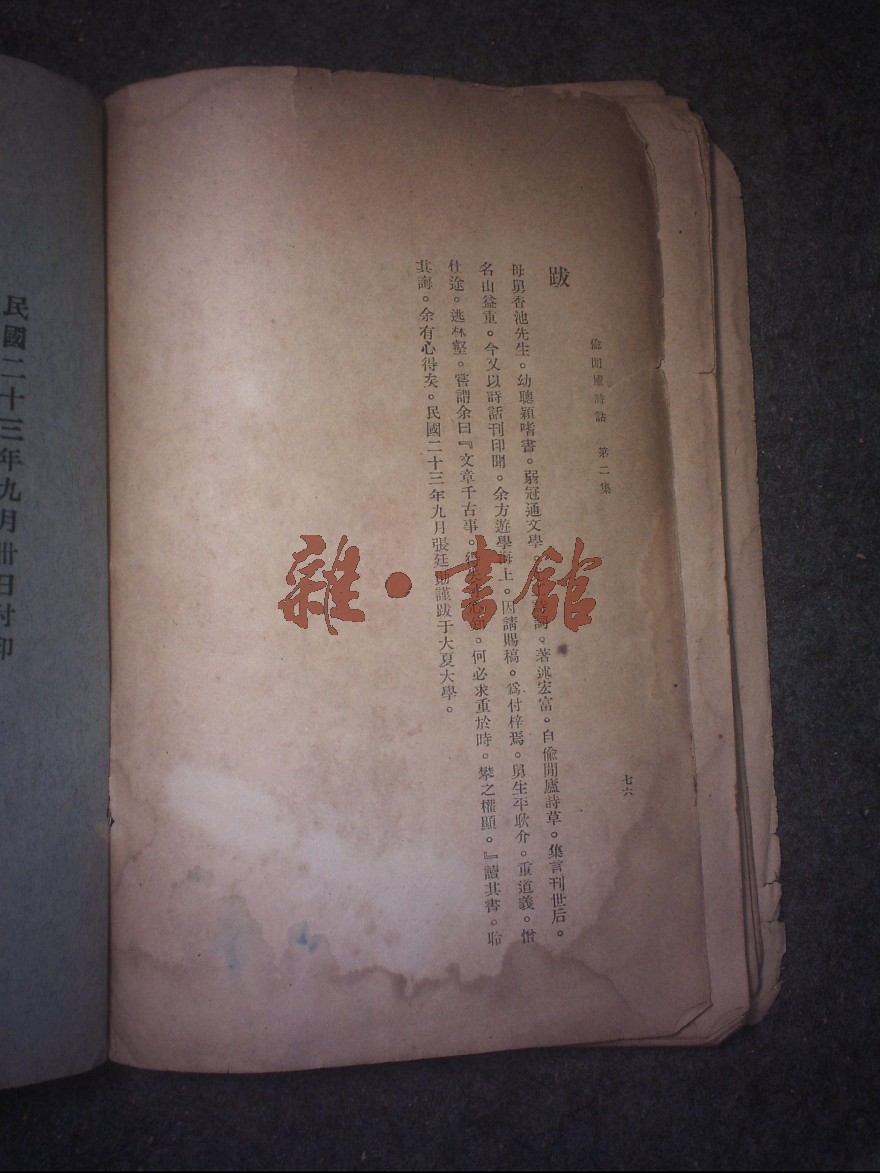 偷閒廬詩話　第二集
七六
跋
母舅香池先生。幼聰穎嗜書。弱冠通文學。詞。著述宏富。自偷閒廬詩草。集言刊世后。
名山益重。今又以詩話刊印聞。余方遊學海上。因請賜稿。爲付梓焉。舅生平耿介。重道義。
仕途。逃林壑。嘗謂余曰『文章千古事。何必求重於時。攀之權顯。』讀其書。聆
其誨。余有心得矣。民國二十三年九月張廷勛謹跋于大夏大學。
民國二十三年九月卅日付印
雜·書館